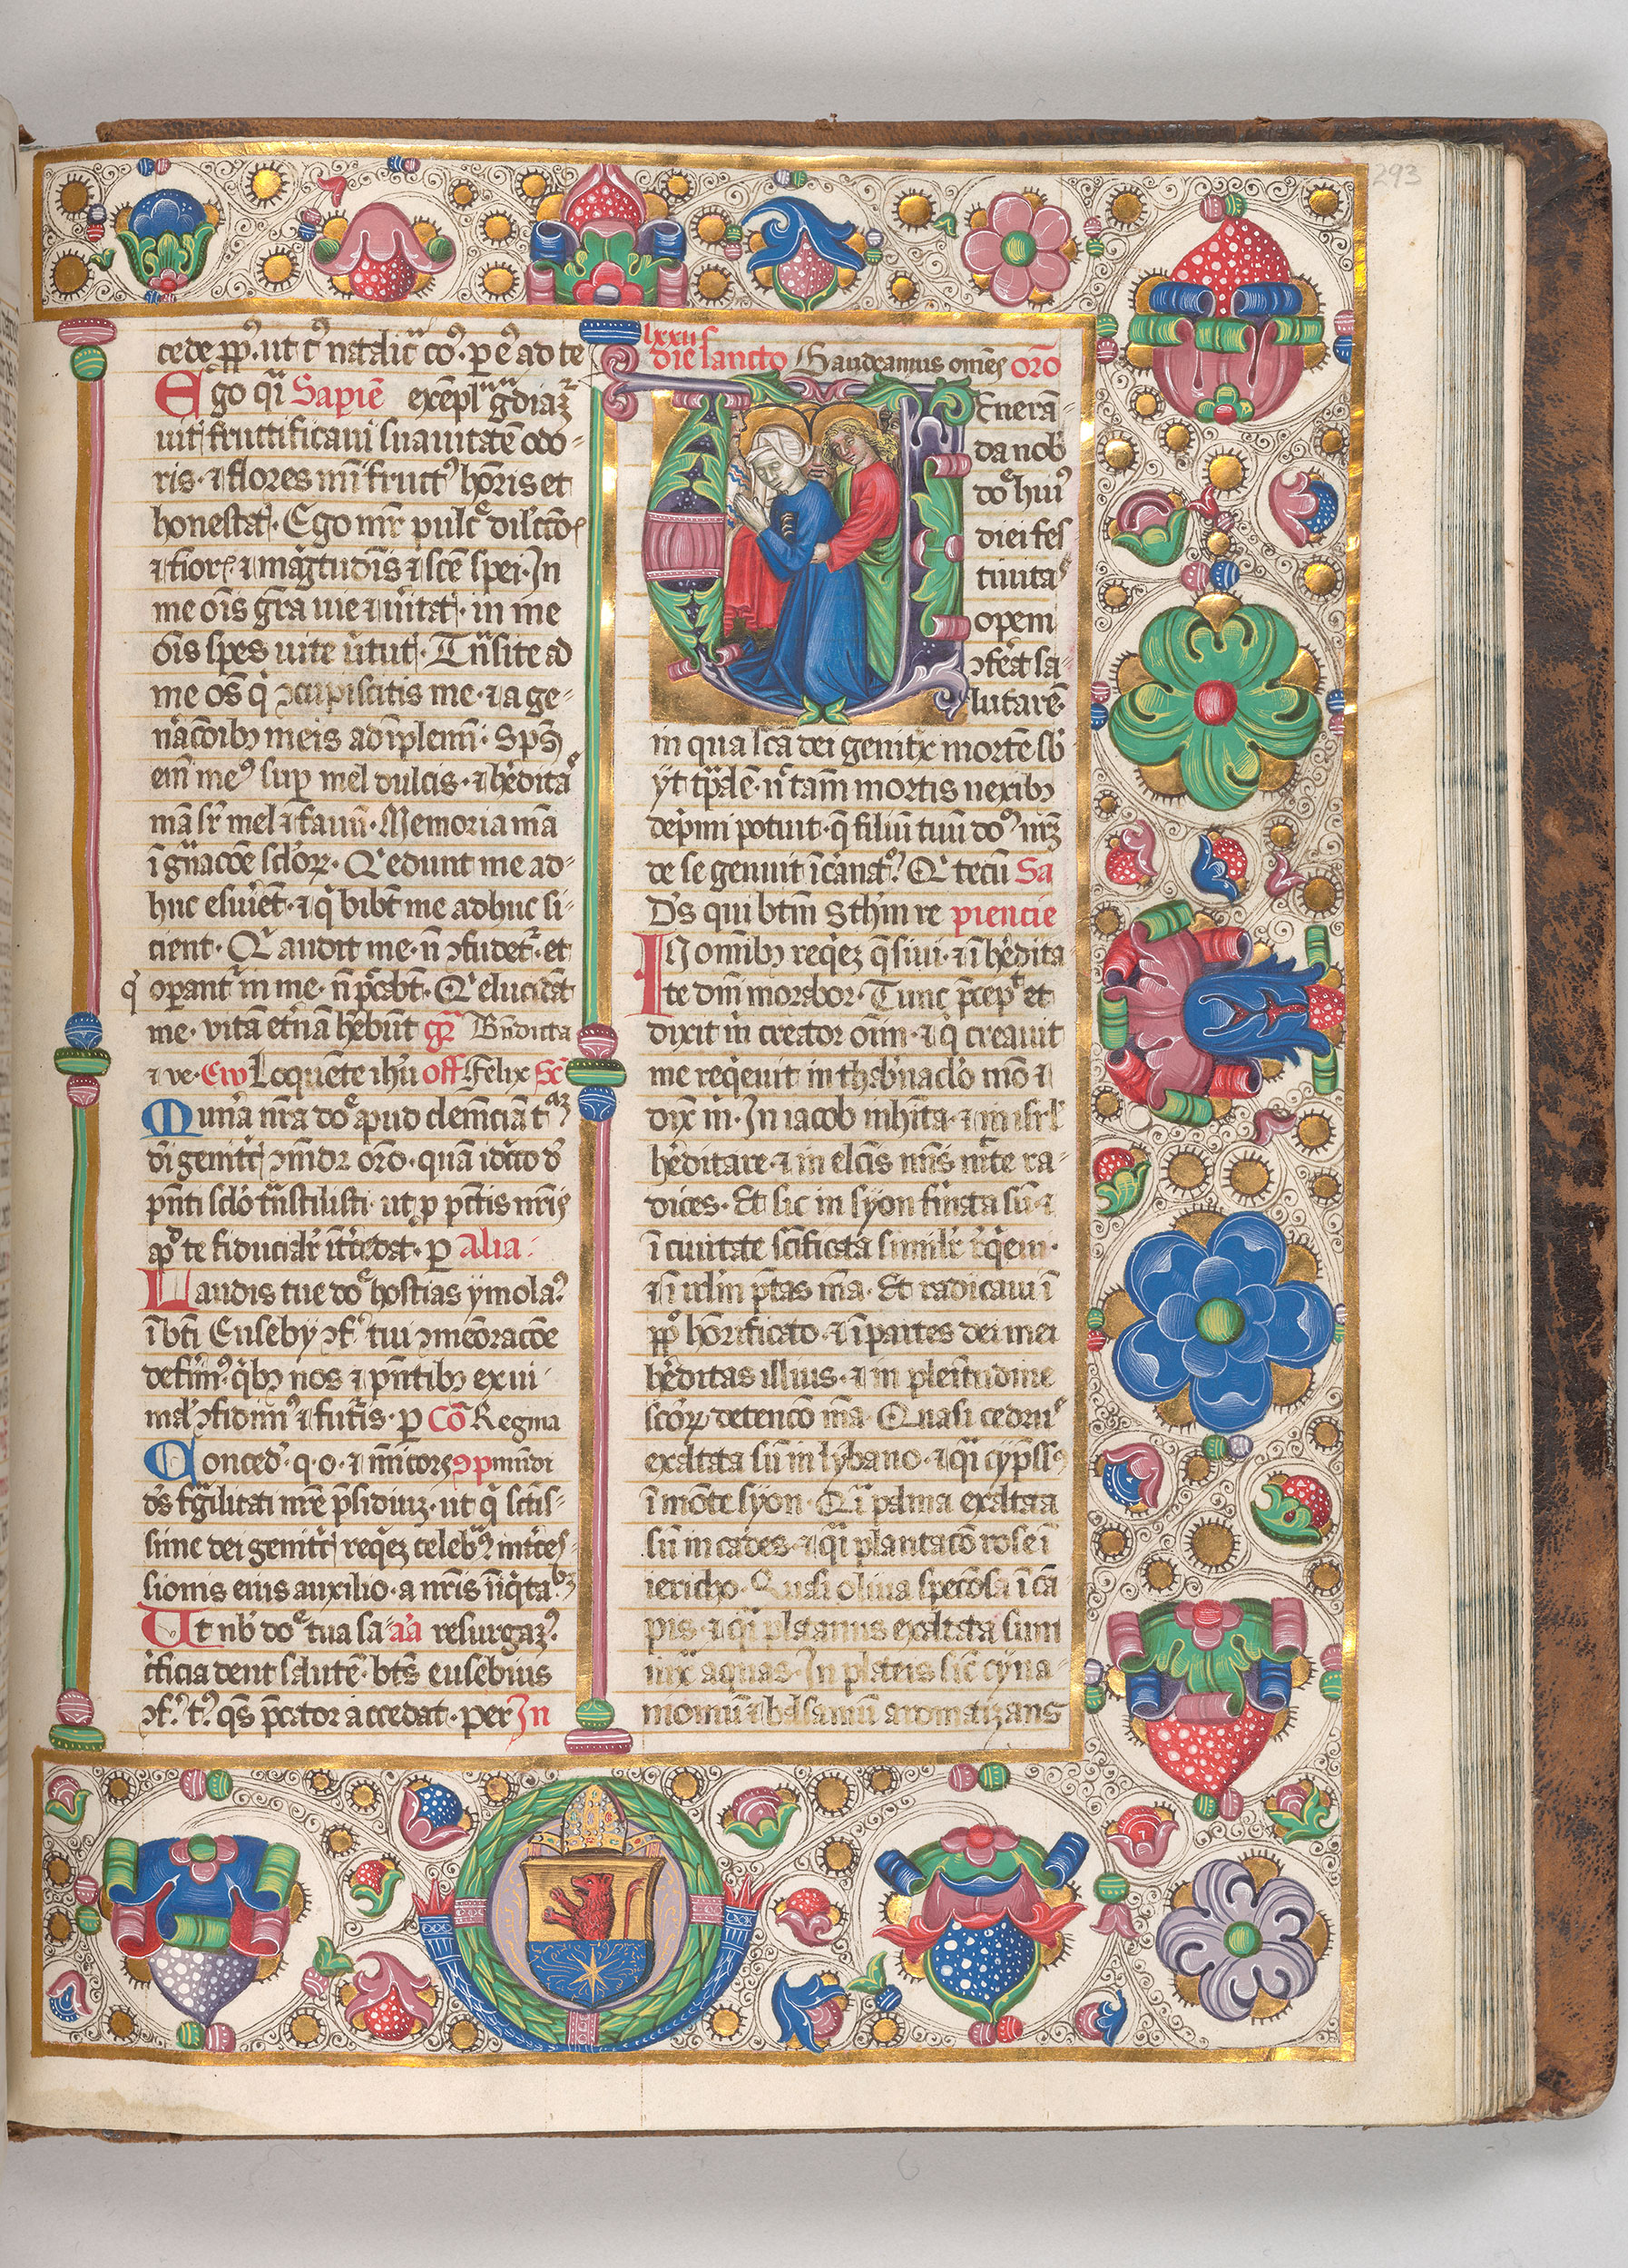 293
cede ꝓp̃. ut c̾ natalic̃ co᷒. p eͤ ad te
Ego qͥ Sapiẽ exẽpl gͣdiaꝫ
uit fructificaui suauitatẽ odo-
ris. ⁊ flores mͥ fruct᷒ hõris et
honestat. Ego mr̃ pulc̾ dil̾ccõ
⁊ tiorꝭ ⁊ mag̾tudĩs ⁊ sc̃e spei. In
me oĩs gr̃a uie ⁊ ũitat. in me
oĩs spes uite ũtut. Trñsite ad
me os̃ qͥ ꝯcupiscitis me. ⁊ a ge-
nãcõibꝫ meis adĩplem̃. Sps̃
em̃ me᷒ suꝑ mel dulcis. ⁊ h̾edita
mã sr̃ mel ⁊ fauũ. Memoria mã
ĩ gñacõe sclõꝝ. Q edunt me ad-
huc esuriẽt. ⁊ qͥ bibt̃ me adhuc si-
cient. Q audit me. ñ ꝯfudet̃. et
qͥ oꝑant̃ in me. ñ pc̃abt̃. Q elucidãt
me. vitã et̃nã h̃ebũt gͬ Bñdicta
⁊ ve. Ew̃ Loquẽte ih̃u off Felix Sc̃
Mun̾a nr̃a dõe apud clem̃ciã t
di genitͥc ꝯmẽdꝫ orõ. quã idc̾co d̾
pñti sclõ tñstulisti. ut ꝓ pctĩs nr̃is
apͩ te fiducialr̾ ĩt̾cedat. p alia
Laudis tue dõe hostias ymola᷒
ĩ bt̃i Eusebij ꝯf᷒ tui ꝯmẽoracõe
deferim᷒. qͥbꝫ nos ⁊ pñtibꝫ exui
mal̾ ꝯfidim᷒ ⁊ fut̾is. p Cõ Regina
Conced̾. q. o. ⁊ m̃icors ꝯp mundi
ds̃ fragilitati nr̃e p̃sidiuꝫ. ut qͥ sctĩs-
sime dei genitͥc reqͥeꝫ celeb᷒ int̾ces-
sionis eius auxilio. a nr̃is ĩiqͥta
Ut nb̾ dõe tua sa aͣ resurgaꝫ᷒.
c̾ficia dent salutẽ. bt̃s eusebius
ꝯf᷒ t᷒ qs̃ p̃cator accedat. per In
lxxij
die sancto Gaudeamus omẽs orõ
Venerã-
da nob̾
dõe hui᷒
diei fes
tiuitas
opem
ꝯferat sa-
lutarẽ
in qua sc̃a dei genitͥx mortẽ sb̾
ijt tp̃alẽ. n̾ tam̃ mortis nexibꝫ
dep̃mi potuit. q̃ filiũ tuũ do᷒ nr̃ꝫ
de se genuit ĩcarnat᷒. Q tecũ Sa
D̃s qui btm̃ Sth̾m re piencie
In omĩbꝫ reqͥeꝫ q̃siui. ⁊ ĩ h̾edita
te dm̃i morabor. Tunc p̃cep̾ et
dixit m̾ creator oĩm. ⁊ qͥ creauit
me reqͥeuit in thab̾naclõ mõ ⁊
dix̾ m̾. In iacob inhĩta. ⁊ in isrl̾
h̾editare. ⁊ in elc̃is mĩs mĩte ra-
dices. Et sic in syon firmata sũ. ⁊
ĩ ciuitate sc̃ificata similr̾ reqͥeui.
⁊ ĩ irlm̃ p̃tas mã. Et radicaui ĩ
pp̃lo hõrificato. ⁊ ĩ partes dei mei
h̾editas illius. ⁊ in plenitudine
sc̃õꝝ detencõ mã. Quasi cedrus
exaltata sũ in lybano. ⁊ qͣ cyp̃ss᷒
ĩ mõte syon. Qͣ palma exaltata
sũ in cades. ⁊ qͣ plantacõ rose ĩ
iericho. Quasi oliua specõsa ĩ cã
pis. ⁊ qͣ platanus exaltata sum
iux̾ aquas. In plateis sic̃ cyna-
momũ ⁊ balsamũ aromatizans